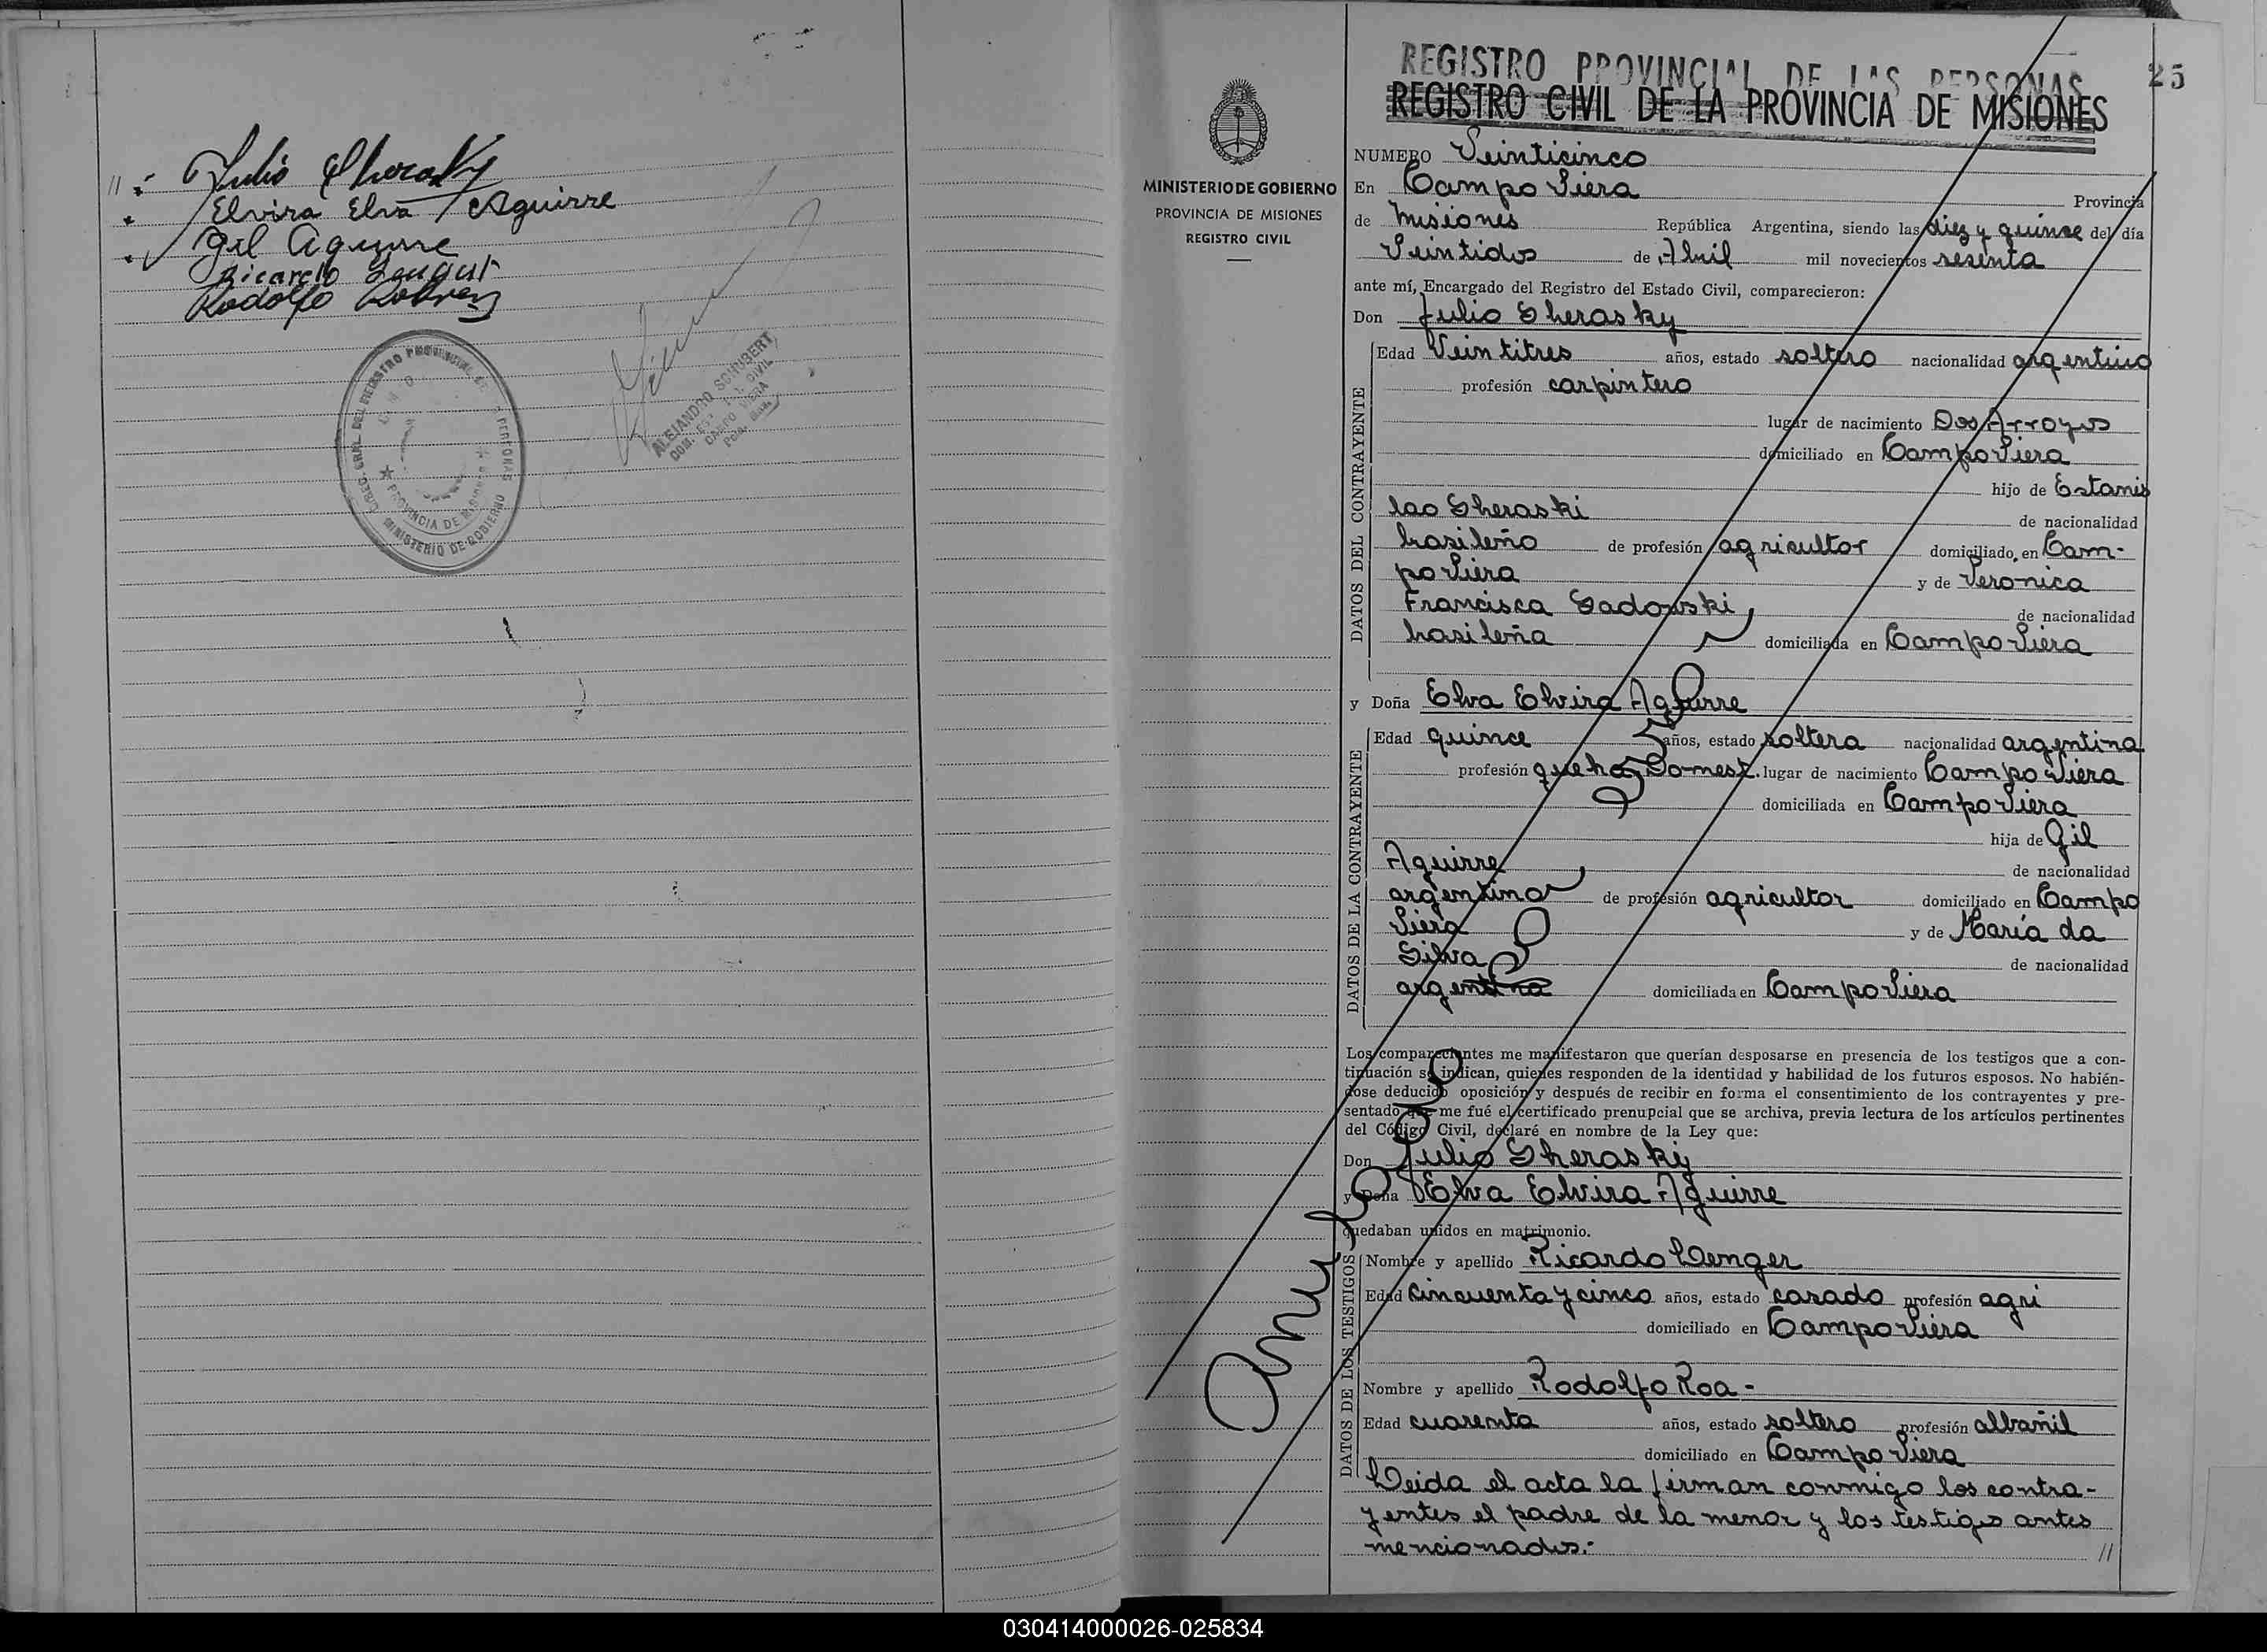 Julio Sherasky
Elvira Elva Aguirre
Gil Aguirre
Ricardo
Rodolfo
ALEJANDRO SCHUBERT
CIVIL
CAMPO VIERA
PROVINCIA DE MISIONES
MINISTERIO DE GOBIERNO
MINISTERIO DE GOBIERNO
PROVINCIA DE MISIONES
REGISTRO CIVIL
REGISTRO PROVINCIAL DE LAS PERSONAS
25
REGISTRO CIVIL DE LA PROVINCIA DE MISIONES
NUMERO Veinticinco
En Campo Viera Provincia
de Misiones República Argentina, siendo las diez y quince del día
Veintidos de Abril mil novecientos sesenta
ante mí, Encargado del Registro del Estado Civil, comparecieron:
Don Julio Sherasky
DATOS DEL CONTRAYENTE
Edad Veintitres años, estado soltero nacionalidad argentino
profesión carpintero
lugar de nacimiento Dos Arroyos
domiciliado en Campo Viera
hijo de Estanis
lao Sheraski de nacionalidad
brasileño de profesión agricultor domiciliado en Cam-
po Viera y de Veronica
Francisca Sadowski de nacionalidad
brasileña domiciliada en Campo Viera
y Doña Elva Elvira Aguirre
DATOS DE LA CONTRAYENTE
Edad quince años, estado soltera nacionalidad argentina
profesión quehac Domest. lugar de nacimiento Campo Viera
domiciliada en Campo Viera
hija de Gil
Aguirre de nacionalidad
argentino de profesión agricultor domiciliado en Campo
Viera y de María da
Silva de nacionalidad
argentina domiciliada en Campo Viera
Los comparecientes me manifestaron que querían desposarse en presencia de los testigos que a con-
tinuación se indican, quienes responden de la identidad y habilidad de los futuros esposos. No habién-
dose deducido oposición y después de recibir en forma el consentimiento de los contrayentes y pre-
sentado que me fué el certificado prenupcial que se archiva, previa lectura de los artículos pertinentes
del Código Civil, declaré en nombre de la Ley que:
Don Julio Sherasky
y Doña Elva Elvira Aguirre
quedaban unidos en matrimonio.
Anulado
DATOS DE LOS TESTIGOS
Nombre y apellido Ricardo Wenger
Edad Cincuenta y cinco años, estado casado profesión agri
domiciliado en Campo Viera
Nombre y apellido Rodolfo Roa -
Edad cuarenta años, estado soltero profesión albañil
domiciliado en Campo Viera
Leida el acta la firman conmigo los contra-
yentes el padre de la menor y los testigos antes
mencionados.- //
030414000026-025834